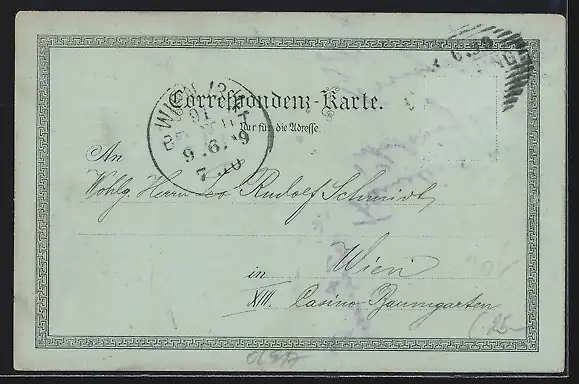 Correspondenz-Karte.
Nur für die Adresse.
WIEN 13
BESTELLT
9.6.99
An
Wohlg. Herrn Rudolf Schmidt
in Wien
XIII. Casino Baumgarten
25-